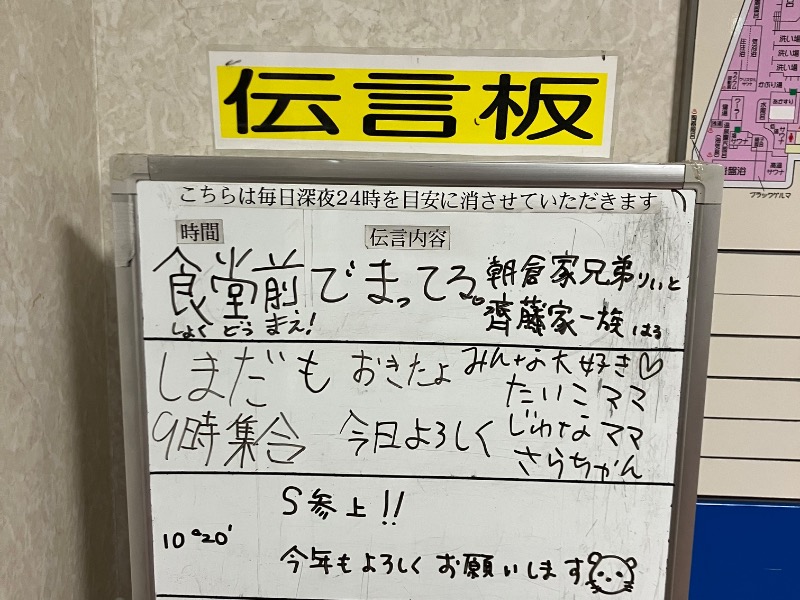 伝言板
こちらは毎日深夜24時を目安に消させていただきます
時間 伝言内容
食堂前でまってる。
しょくどうまえ!
朝倉家兄弟りいと
齊藤家一族はる
しまだも おきたよ みんな大好き♡
たいこママ
9時集合 今日よろしく じゅなママ
さらちかん
S参上!!
10°20'
今年もよろしくお願いします
洗い場
洗い場
洗い場
かぶり湯
あかすり
水風呂
サウナ
高温
サウナ
岩盤浴
ブラックゲルマ